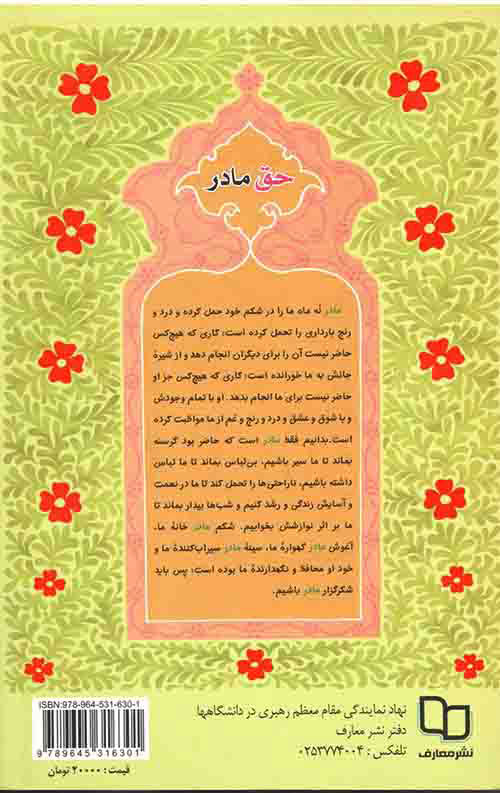 حق مادر
مادر نُه ماه ما را در شکم خود حمل کرده و درد و
رنج بارداری را تحمل کرده است؛ کاری که هیچ‌کس
حاضر نیست آن را برای دیگران انجام دهد و از شیرهٔ
جانش به ما خورانده است؛ کاری که هیچ‌کس جز او
حاضر نیست برای ما انجام بدهد. او با تمام وجودش
و با شوق و عشق و درد و رنج و غم از ما مواظبت کرده
است. بدانیم فقط مادر است که حاضر بود گرسنه
بماند تا ما سیر باشیم، بی‌لباس بماند تا ما لباس
داشته باشیم، ناراحتی‌ها را تحمل کند تا ما در نعمت
و آسایش زندگی و رشد کنیم و شب‌ها بیدار بماند تا
ما بر اثر نوازشش بخوابیم. شکم مادر خانهٔ ما،
آغوش مادر گهوارهٔ ما، سینهٔ مادر سیراب‌کنندهٔ ما و
خود او محافظ و نگهدارندهٔ ما بوده است؛ پس باید
شکرگزار مادر باشیم.
نهاد نمایندگی مقام معظم رهبری در دانشگاهها
دفتر نشر معارف
تلفکس : ۰۲۵۳۷۷۴۰۰۴
نشر معارف
ISBN:978-964-531-630-1
9 789645 316301
قیمت: ۲۰۰۰۰ تومان